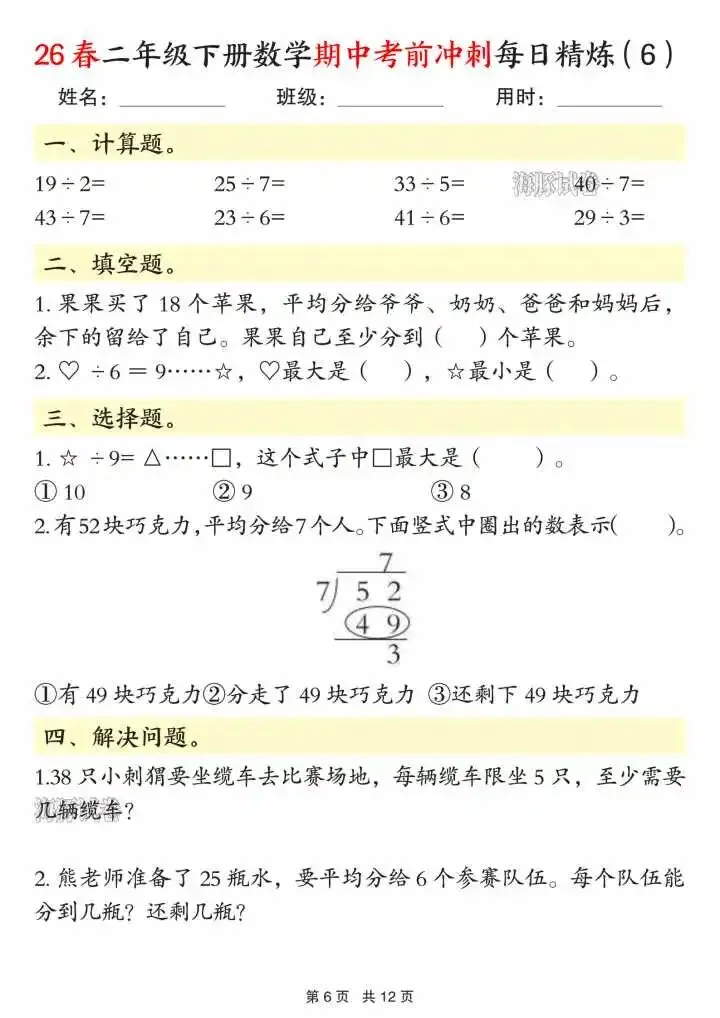 26春二年级下册数学期中考前冲刺每日精炼(6)
姓名：________ 班级：________ 用时：________
一、计算题。
19÷2= 25÷7= 33÷5= 40÷7=
43÷7= 23÷6= 41÷6= 29÷3=
海豚试卷
二、填空题。
1. 果果买了 18 个苹果，平均分给爷爷、奶奶、爸爸和妈妈后，
余下的留给了自己。果果自己至少分到（ ）个苹果。
2. ♡ ÷6 = 9……☆，♡最大是（ ），☆最小是（ ）。
三、选择题。
1. ☆ ÷9= △……□，这个式子中□最大是（ ）。
① 10 ② 9 ③ 8
2. 有52块巧克力，平均分给7个人。下面竖式中圈出的数表示( )。
7
7 5 2
4 9
3
①有 49 块巧克力②分走了 49 块巧克力 ③还剩下 49 块巧克力
四、解决问题。
1.38 只小刺猬要坐缆车去比赛场地，每辆缆车限坐 5 只，至少需要
几辆缆车？
海豚试卷
2. 熊老师准备了 25 瓶水，要平均分给 6 个参赛队伍。每个队伍能
分到几瓶？还剩几瓶？
第 6 页 共 12 页